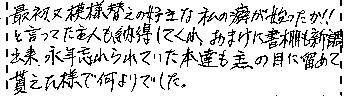 最初又模様替えの好きな私の癖が始ったか!!
と言ってた主人も納得してくれ、おまけに書棚も新調
出来、永年忘れられていた本達も孟の目に留めて
貰えた様で何よりでした。